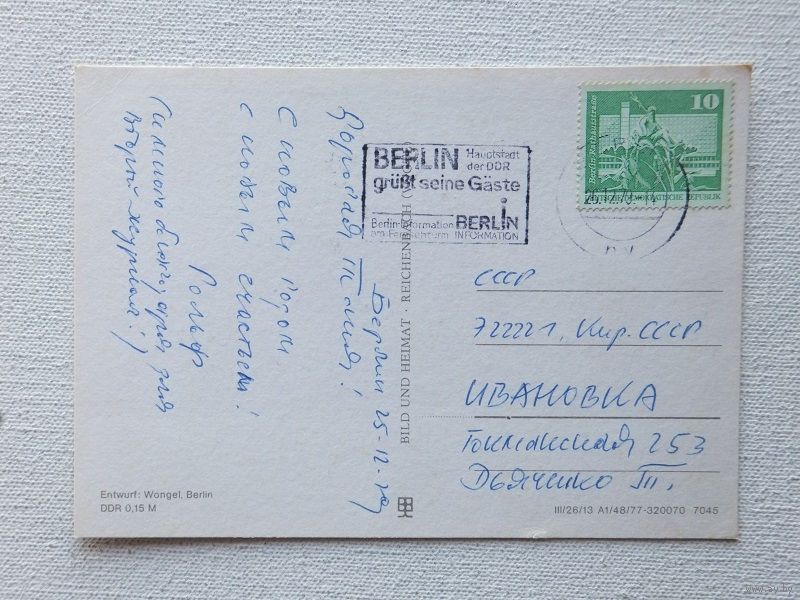 Берлин 25-12-79
Дорогая Таня!
С новым годом
с новым счастьем!
Рольф
благодарю для
второй журнал!)
BERLIN
Hauptstadt
der DDR
grüßt seine Gäste
Berlin-Information
am Fernsehturm
BERLIN
INFORMATION
10
Berlin·Rathausstraße
DEUTSCHE DEMOKRATISCHE REPUBLIK
26.12.79
СССР
722221, Кир. СССР
ИВАНОВКА
Токмакская 253
Дьяченко Т.
BILD UND HEIMAT · REICHENBACH
Entwurf: Wongel, Berlin
DDR 0,15 M
III/26/13 A1/48/77-320070 7045
www.ay.by